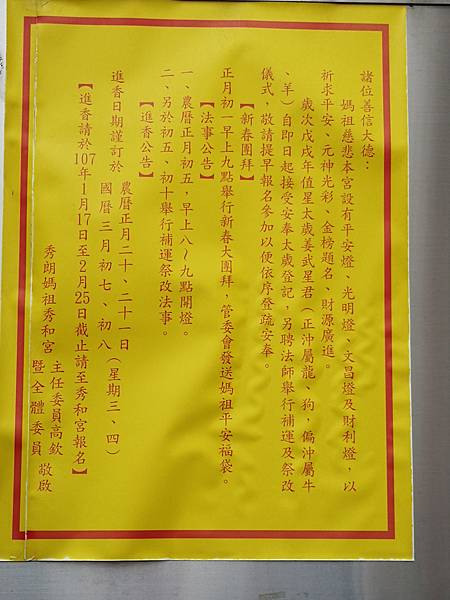 諸位善信大德：
媽祖慈悲本宮設有平安燈、光明燈、文昌燈及財利燈，以
祈求平安、元神光彩、金榜題名、財源廣進。
歲次戊戌年值星太歲姜武星君（正沖屬龍、狗，偏沖屬牛
、羊）自即日起接受安奉太歲登記，另聘法師舉行補運及祭改
儀式，敬請提早報名參加以便依序登疏安奉。
【新春團拜】
正月初一早上九點舉行新春大團拜，管委會發送媽祖平安福袋。
【法事公告】
一、農曆正月初五，早上八～九點開燈。
二、另於初五、初十舉行補運祭改法事。
【進香公告】
進香日期謹訂於 農曆正月二十、二十一日（星期三、四）
國曆三月初七、初八
【進香請於107年1月17日至2月25日截止請至秀和宮報名】
秀朗媽祖秀和宮 主任委員高欽
暨全體委員 敬啟